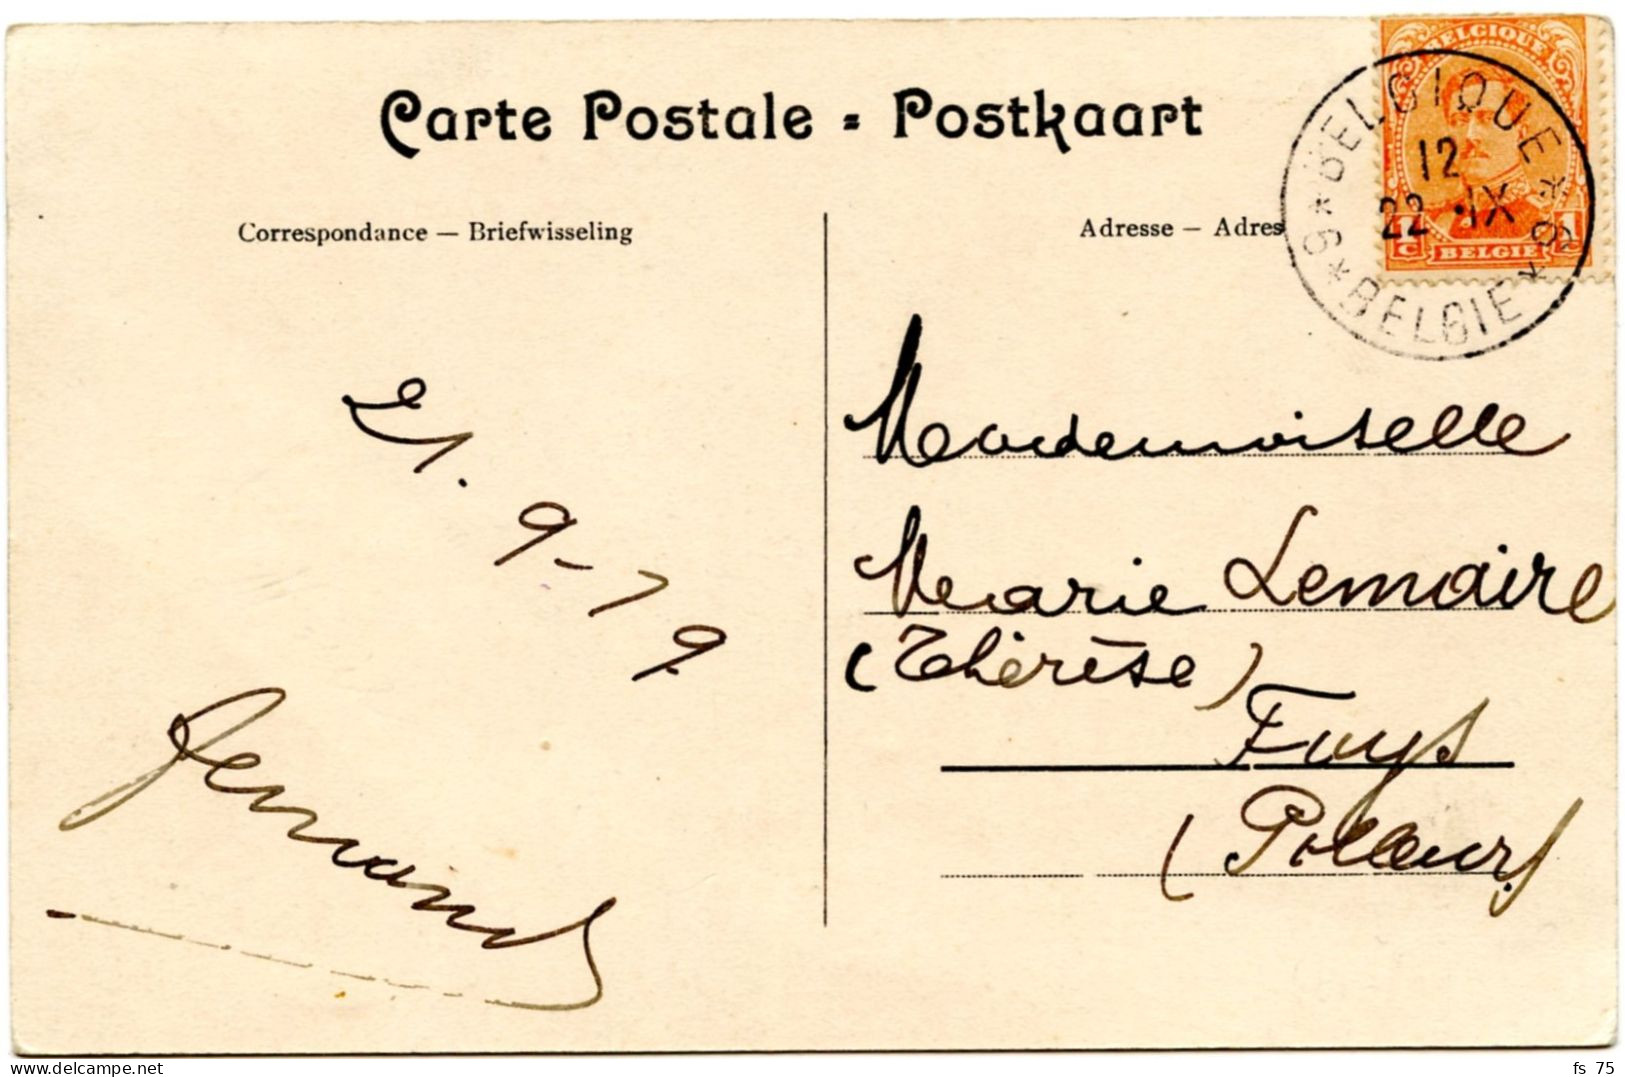 Carte Postale = Postkaart
Correspondance — Briefwisseling
Adresse — Adres
BELGIQUE
1 C
1 C
BELGIE
* BELGIQUE *
12
22 • IX
9 * BELGIE * 9
21. 9-19
Fernand
Mademoiselle
Marie Lemaire
(Thérèse)
Fays
(Polleur)
delcampe.net
fs_75